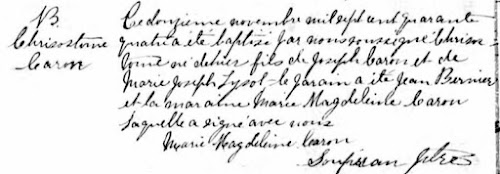 B.
Chrisostome
Caron
Ce douzieme novembre mil sept cent quarante
quatre a été baptisé par nous soussigné Chrisos
tome né d'hier fils de Joseph Caron et de
Marie Joseph Lysot le parain a été Jean Bernier
et la maraine Marie Magdeleine Caron
laquelle a signé avec nous
Marie Magdeleine Caron